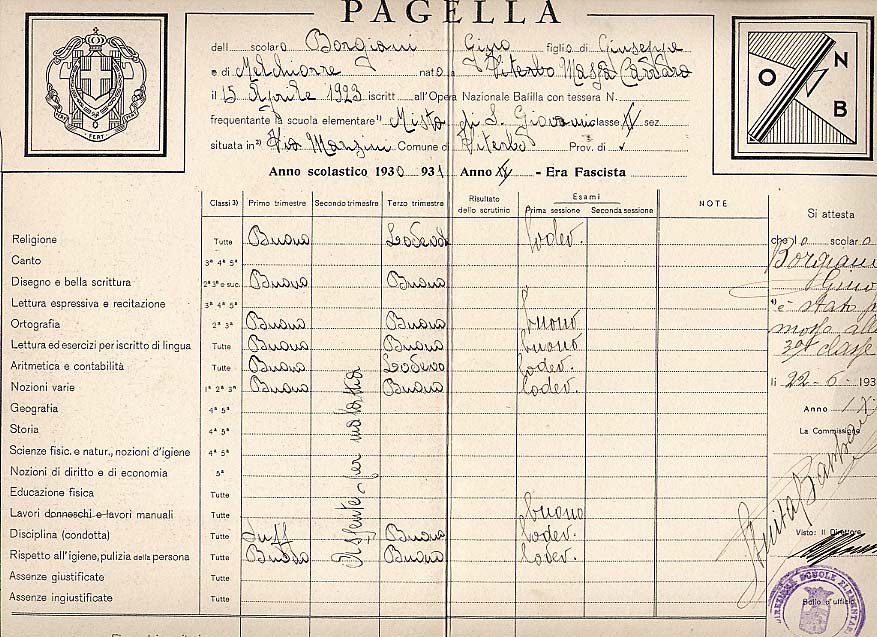 PAGELLA
FERT
O N B
dell scolaro Borgiani Gino figlio di Giuseppe
e di Melchiorre nato a Viterbo
il 15 Aprile 1923 iscritt all'Opera Nazionale Balilla con tessera N.
frequentante la scuola elementare 1) Mista di S. Giovanni classe II sez.
situata in 2) Via Manzini Comune di Viterbo Prov. di
Anno scolastico 1930 931 Anno - Era Fascista
Classi 3) Primo trimestre Secondo trimestre Terzo trimestre Risultato dello scrutinio Esami Prima sessione Seconda sessione NOTE
Religione Tutte Buono Lodevole lodev.
Canto 3ª 4ª 5ª
Disegno e bella scrittura 2ª 3ª e suc. Buono Buono
Lettura espressiva e recitazione 3ª 4ª 5ª
Ortografia 2ª 3ª Buono Buono buono
Lettura ed esercizi per iscritto di lingua Tutte Buono Buono buono
Aritmetica e contabilità Tutte Buono Lodevo lodev.
Nozioni varie 1ª 2ª 3ª Buono Buono lodev.
Geografia 4ª 5ª
Storia 4ª 5ª
Scienze fisic. e natur., nozioni d'igiene 4ª 5ª
Nozioni di diritto e di economia 5ª
Educazione fisica Tutte
Lavori donneschi e lavori manuali Tutte buono
Disciplina (condotta) Tutte Suff Buono lodev.
Rispetto all'igiene, pulizia della persona Tutte Buono Buono lodev.
Assenze giustificate Tutte
Assenze ingiustificate Tutte
Assente per malattia
Si attesta
che lo scolaro
Borgiani
Gino
4) è stato p
mosso alla
3ª classe
lì 22-6- 193
Anno
La Commissione
Visto: Il Direttore
Bollo d'ufficio